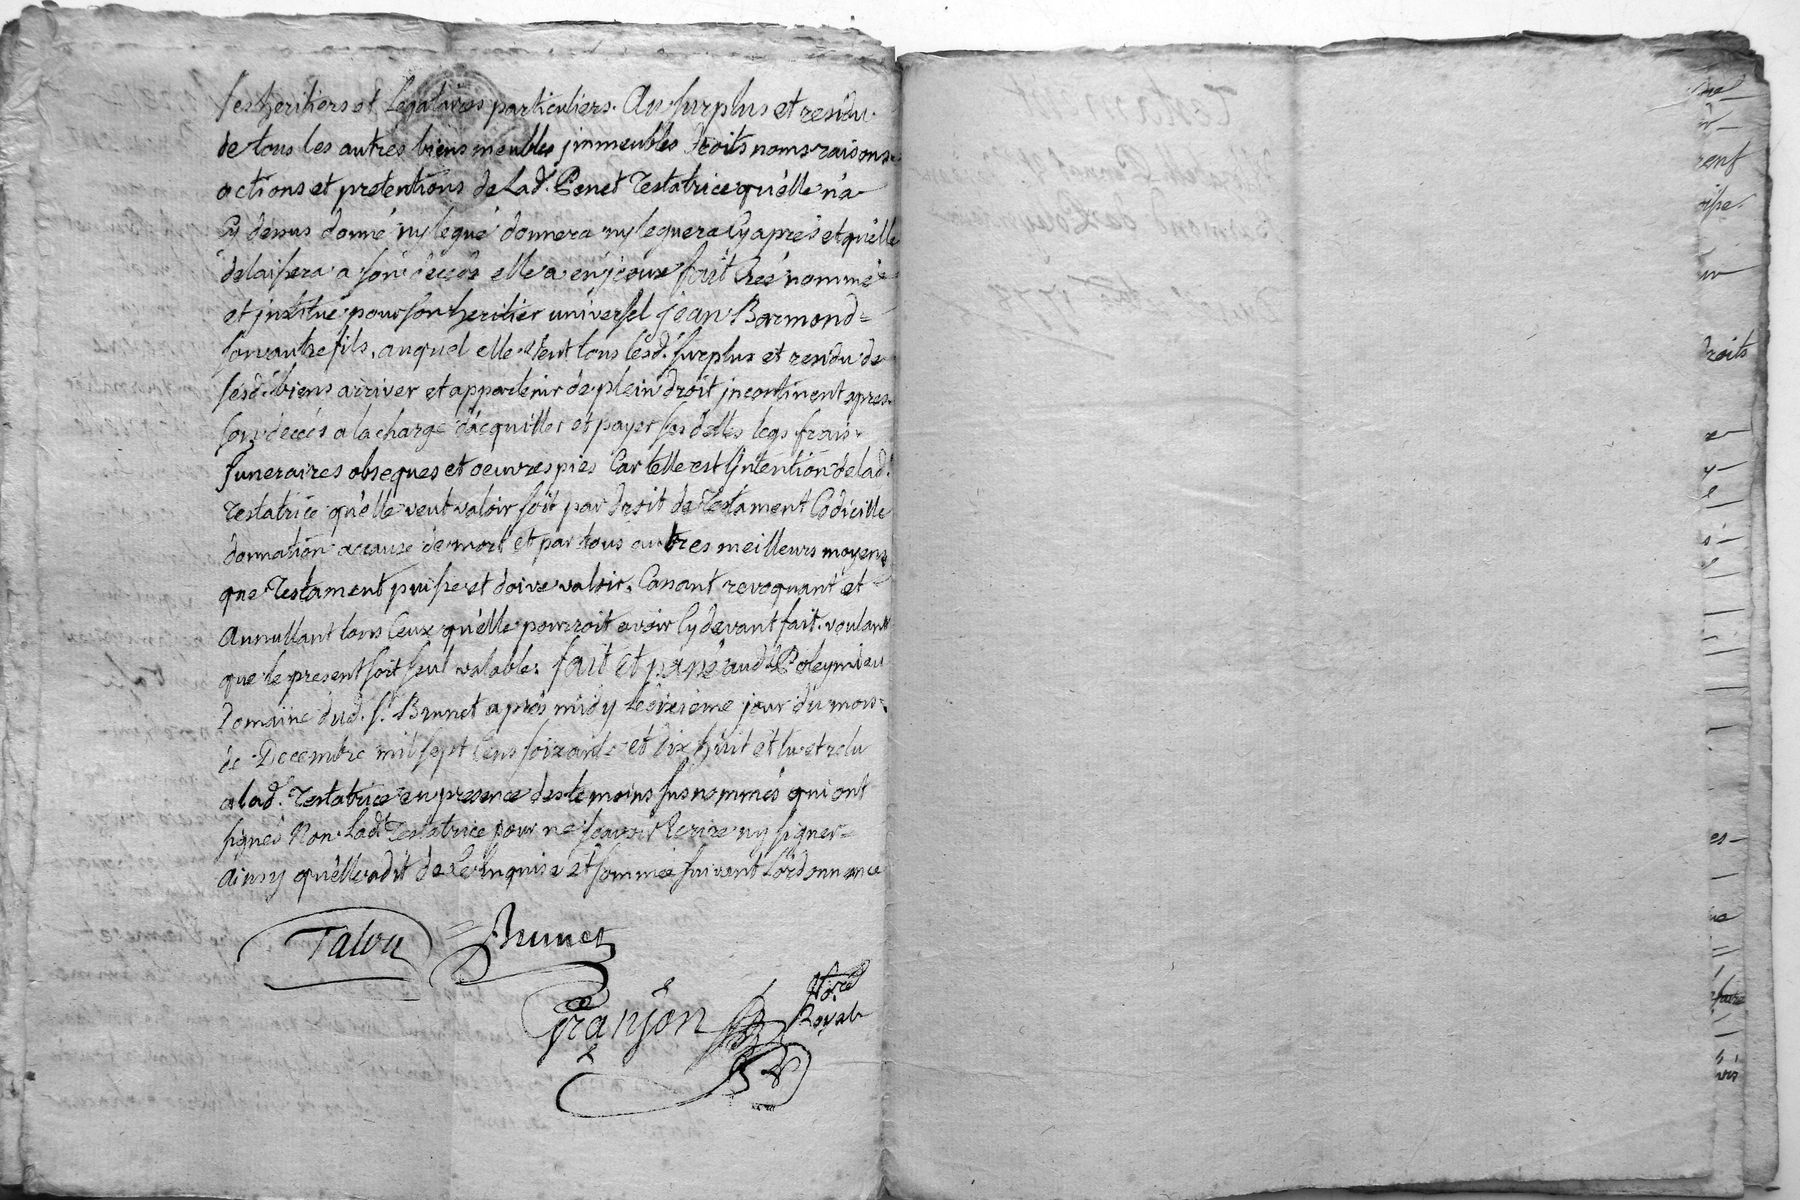 ses heritiers et Legataires particuliers. Au surplus et residu
de tous les autres biens meubles jmmeubles droits noms raisons
actions et pretentions de Lad. Penet Testatrice qu'elle n'a
Cy dessus donné ny legué donnera ny leguera Cyaprés et qu'elle
delaissera a son deccés elle a
fait Creé nommé
et jnstitué pour son heritier universel jean Barmond=
son autre fils, auquel elle veut tous lesd. surplus et residu de
sesd. biens arriver et appartenir de plein droit jncontinent apres
son deccés a la charge d'acquitter et payer ses dettes legs frais
funeraires obseques et oeuvres pies Car telle est L'jntention de lad.
Testatrice qu'elle veut valoir soit par droit de Testament Codicille
donnation a cause de mort et par tous autres meilleurs moyens
que Testament puisse et doive valoir. Cassant revoquant et
Annullant tous Ceux qu'elle pourroit avoir Cydevant fait. voulant
que le present soit seul valable. fait et passé aud. Poleymieu
Domaine dud. Sr. Brunet aprés midy
jour du mois
de Decembre mil sept Cens soixante et dix huit et lu et relu
a lad. Testatrice en presence des temoins susnommés qui ont
signés Non Lad. Testatrice pour ne sçavoir Ecrire ny signer=
Ainsy qu'elle a dit de Ce Enquise et sommée suivant L'ordonnance
Brunet
Granjon
Nore
Royal
Testament
droits